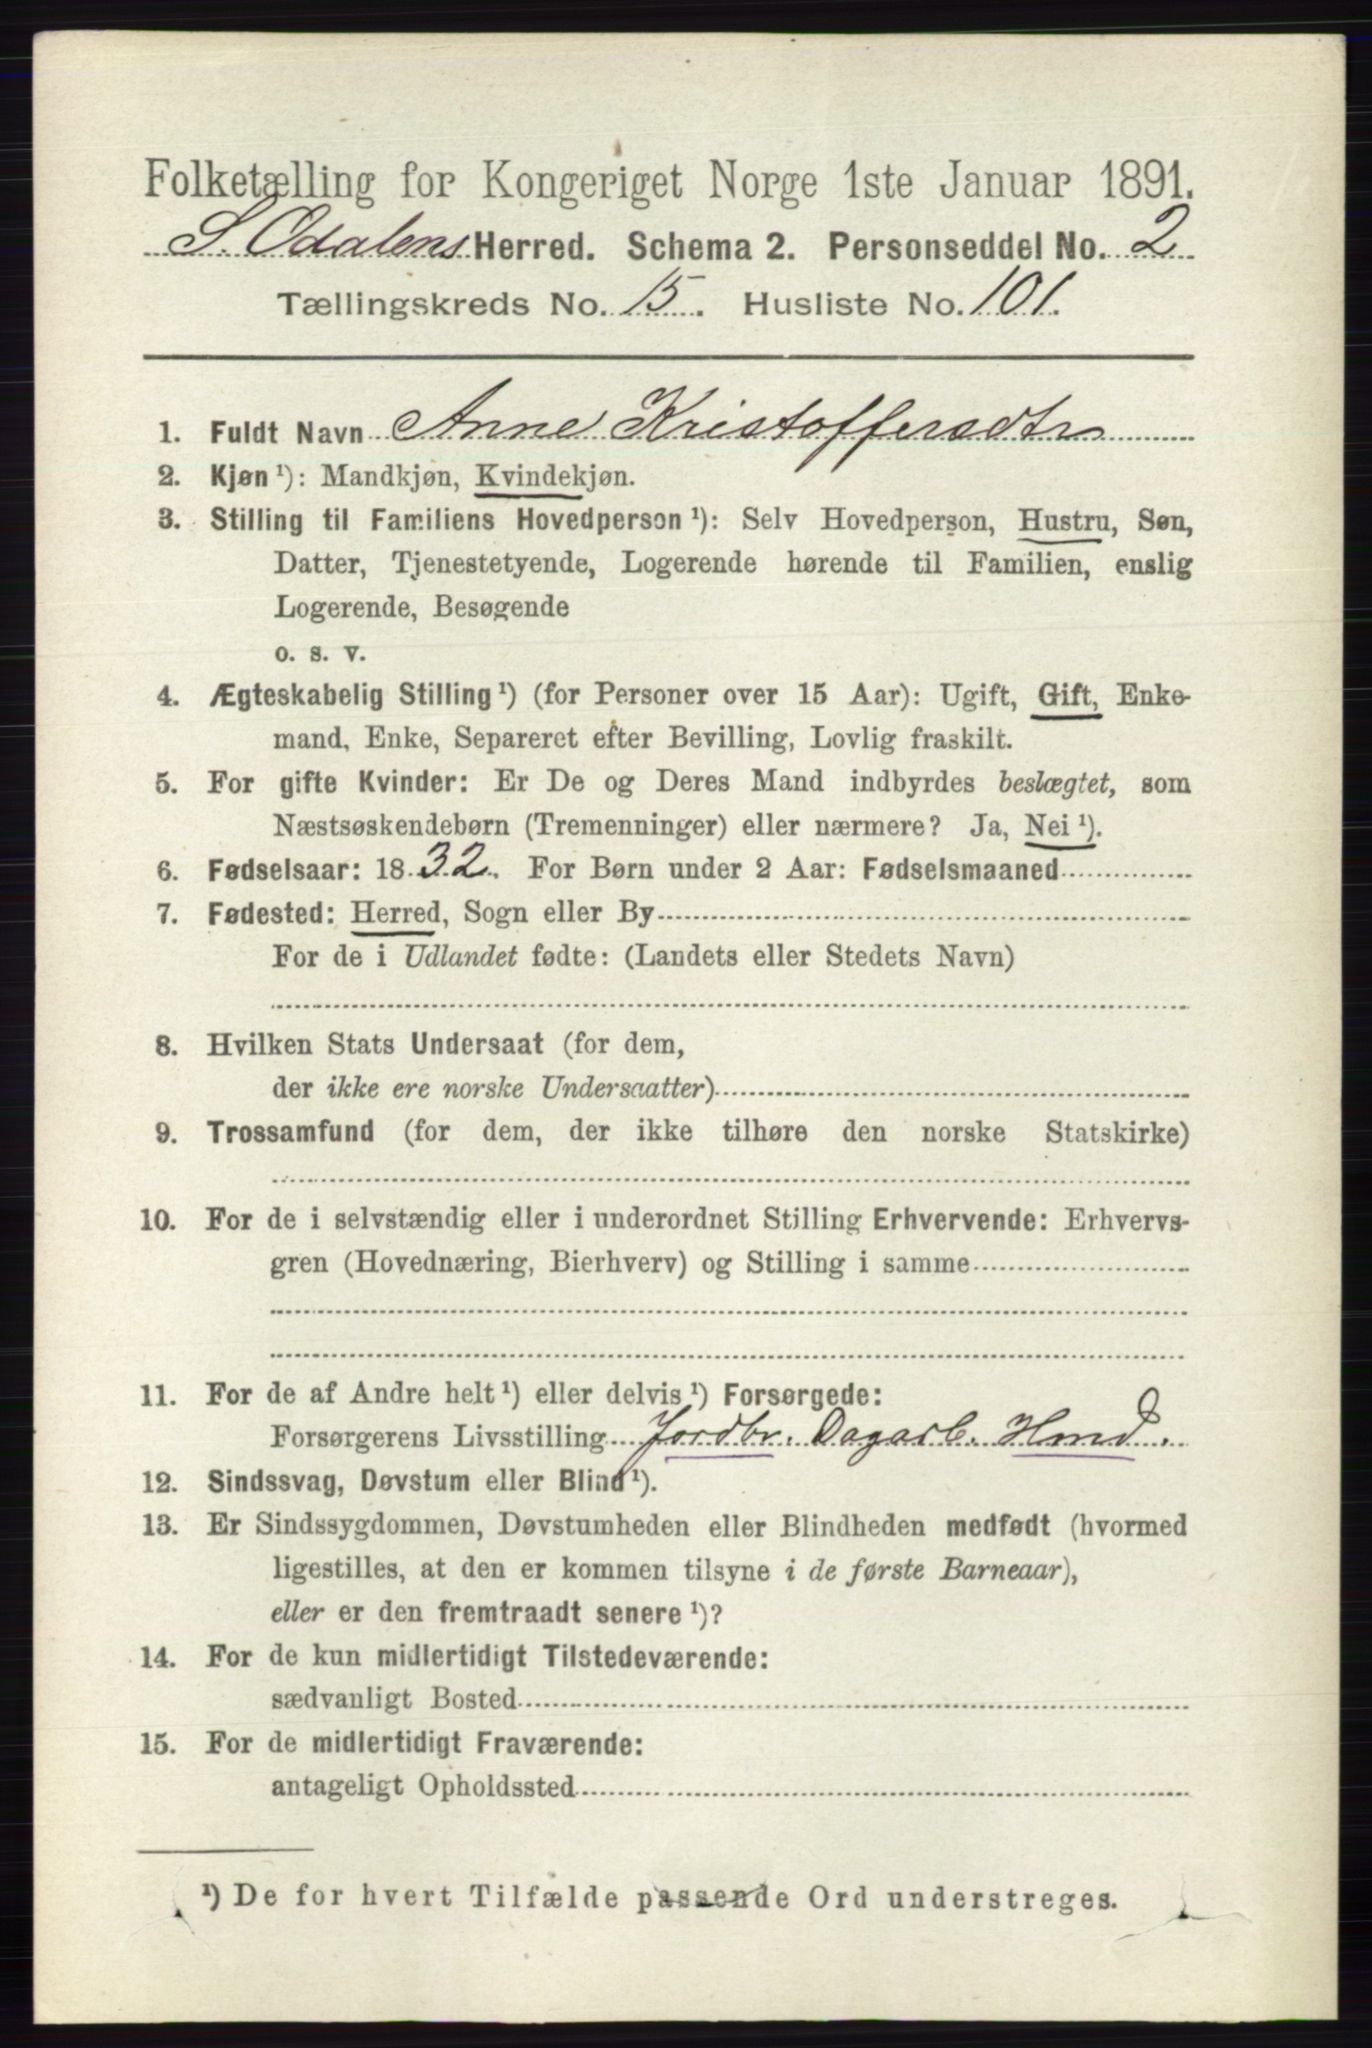 Folketælling for Kongeriget Norge 1ste Januar 1891.
S. Odalens Herred. Schema 2. Personseddel No. 2
Tællingskreds No. 15. Husliste No. 101.
1. Fuldt Navn Anne Kristoffersdtr
2. Kjøn ¹): Mandkjøn, Kvindekjøn.
3. Stilling til Familiens Hovedperson ¹): Selv Hovedperson, Hustru, Søn,
Datter, Tjenestetyende, Logerende hørende til Familien, enslig
Logerende, Besøgende
o. s. v.
4. Ægteskabelig Stilling ¹) (for Personer over 15 Aar): Ugift, Gift, Enke-
mand, Enke, Separeret efter Bevilling, Lovlig fraskilt.
5. For gifte Kvinder: Er De og Deres Mand indbyrdes beslægtet, som
Næstsøskendebørn (Tremenninger) eller nærmere? Ja, Nei ¹).
6. Fødselsaar: 1832. For Børn under 2 Aar: Fødselsmaaned
7. Fødested: Herred, Sogn eller By
For de i Udlandet fødte: (Landets eller Stedets Navn)
8. Hvilken Stats Undersaat (for dem,
der ikke ere norske Undersaatter)
9. Trossamfund (for dem, der ikke tilhøre den norske Statskirke)
10. For de i selvstændig eller i underordnet Stilling Erhvervende: Erhvervs-
gren (Hovednæring, Bierhverv) og Stilling i samme
11. For de af Andre helt ¹) eller delvis ¹) Forsørgede:
Forsørgerens Livsstilling Jordbr. Dagarb. Hmd.
12. Sindssvag, Døvstum eller Blind ¹).
13. Er Sindssygdommen, Døvstumheden eller Blindheden medfødt (hvormed
ligestilles, at den er kommen tilsyne i de første Barneaar),
eller er den fremtraadt senere ¹)?
14. For de kun midlertidigt Tilstedeværende:
sædvanligt Bosted
15. For de midlertidigt Fraværende:
antageligt Opholdssted
¹) De for hvert Tilfælde passende Ord understreges.